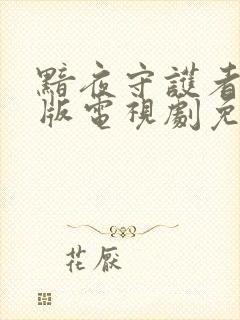 黯夜守護者
版電視劇免
花厭